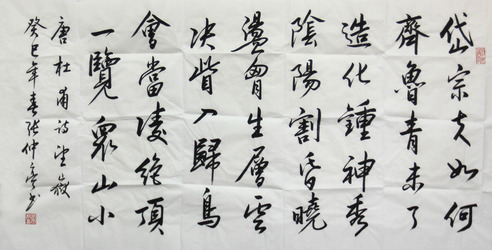 岱宗夫如何
齊魯青未了
造化鍾神秀
陰陽割昏曉
盪胷生層雲
决眥入歸鳥
會當凌絶頂
一覽衆山小
唐杜甫詩望嶽
癸巳年春張仲亭书